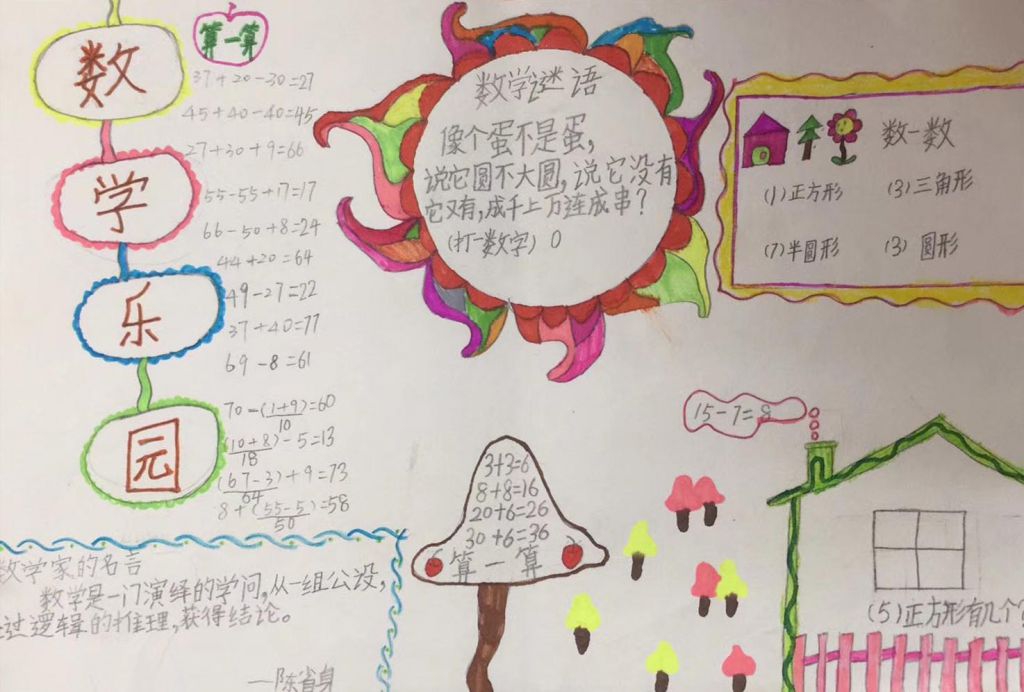 数
学
乐
园
算一算
37+20-30=27
45+40-40=45
27+30+9=66
55-55+17=17
66-50+8=24
44+20=64
49-27=22
37+40=77
69-8=61
70-(1+9)=60
10
(10+8)-5=13
18
(67-3)+9=73
64
8+(55-5)=58
50
数学谜语
像个蛋不是蛋,
说它圆不大圆,说它没有
它又有,成千上万连成串?
(打一数字) 0
数一数
(1)正方形 (3)三角形
(7)半圆形 (3)圆形
数学家的名言
数学是一门演绎的学问,从一组公设,
过逻辑的推理,获得结论。
—陈省身
3+3=6
8+8=16
20+6=26
30+6=36
算一算
15-7=8
(5)正方形有几个?